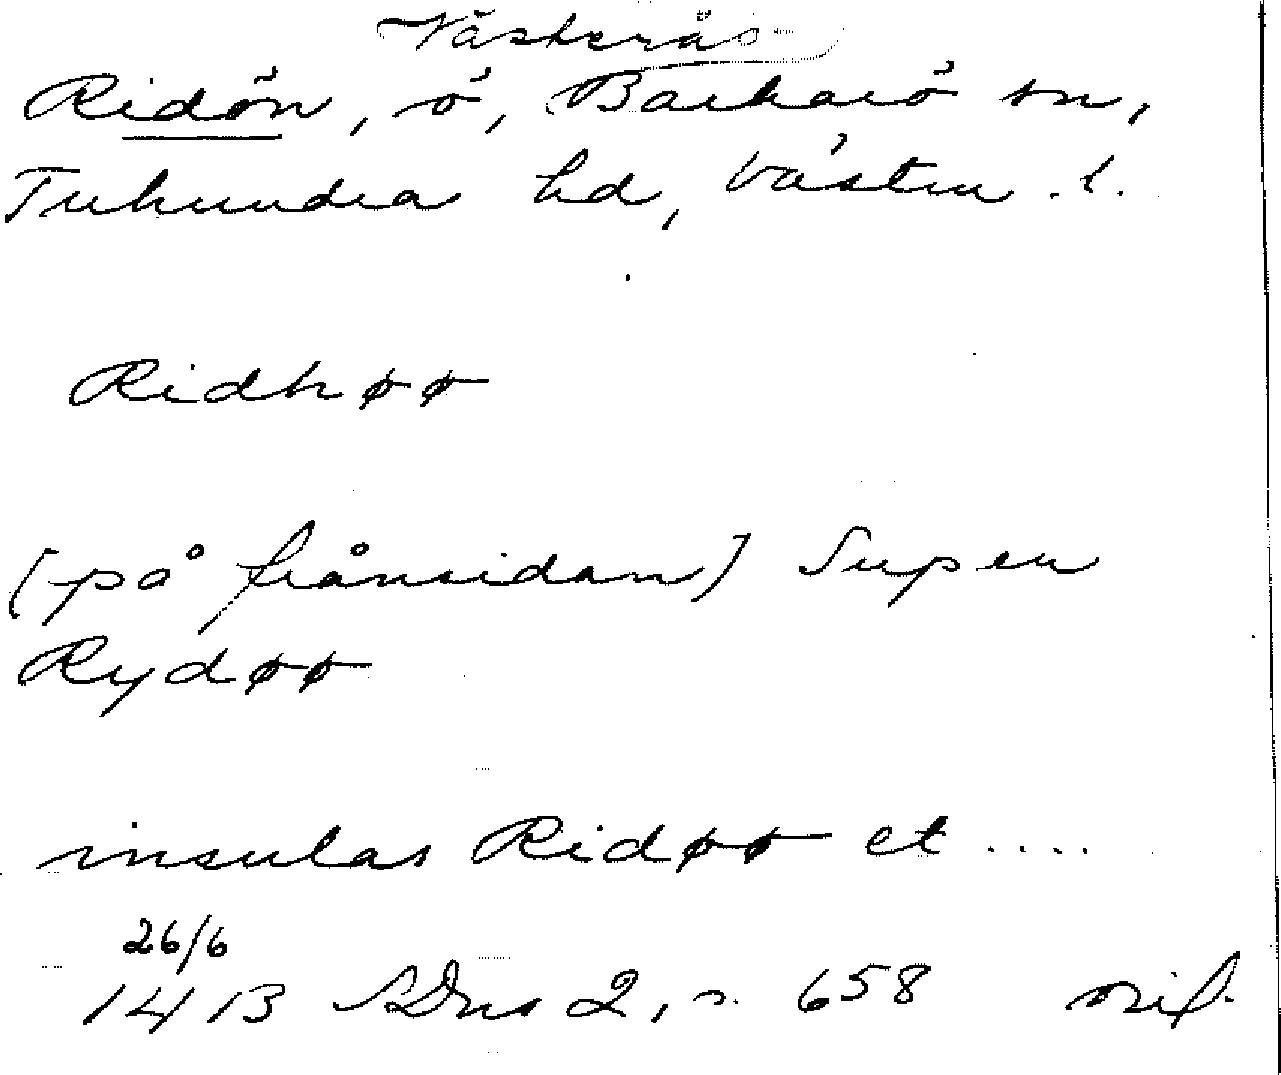 Västerås
Ridön, ö, Barkarö sn,
Tuhundra hd, Västm. l.
Ridhøø
[på frånsidan] Super
Rydøø
insulas Ridøø et ....
26/6
1413 SDns 2, s. 658 orig.